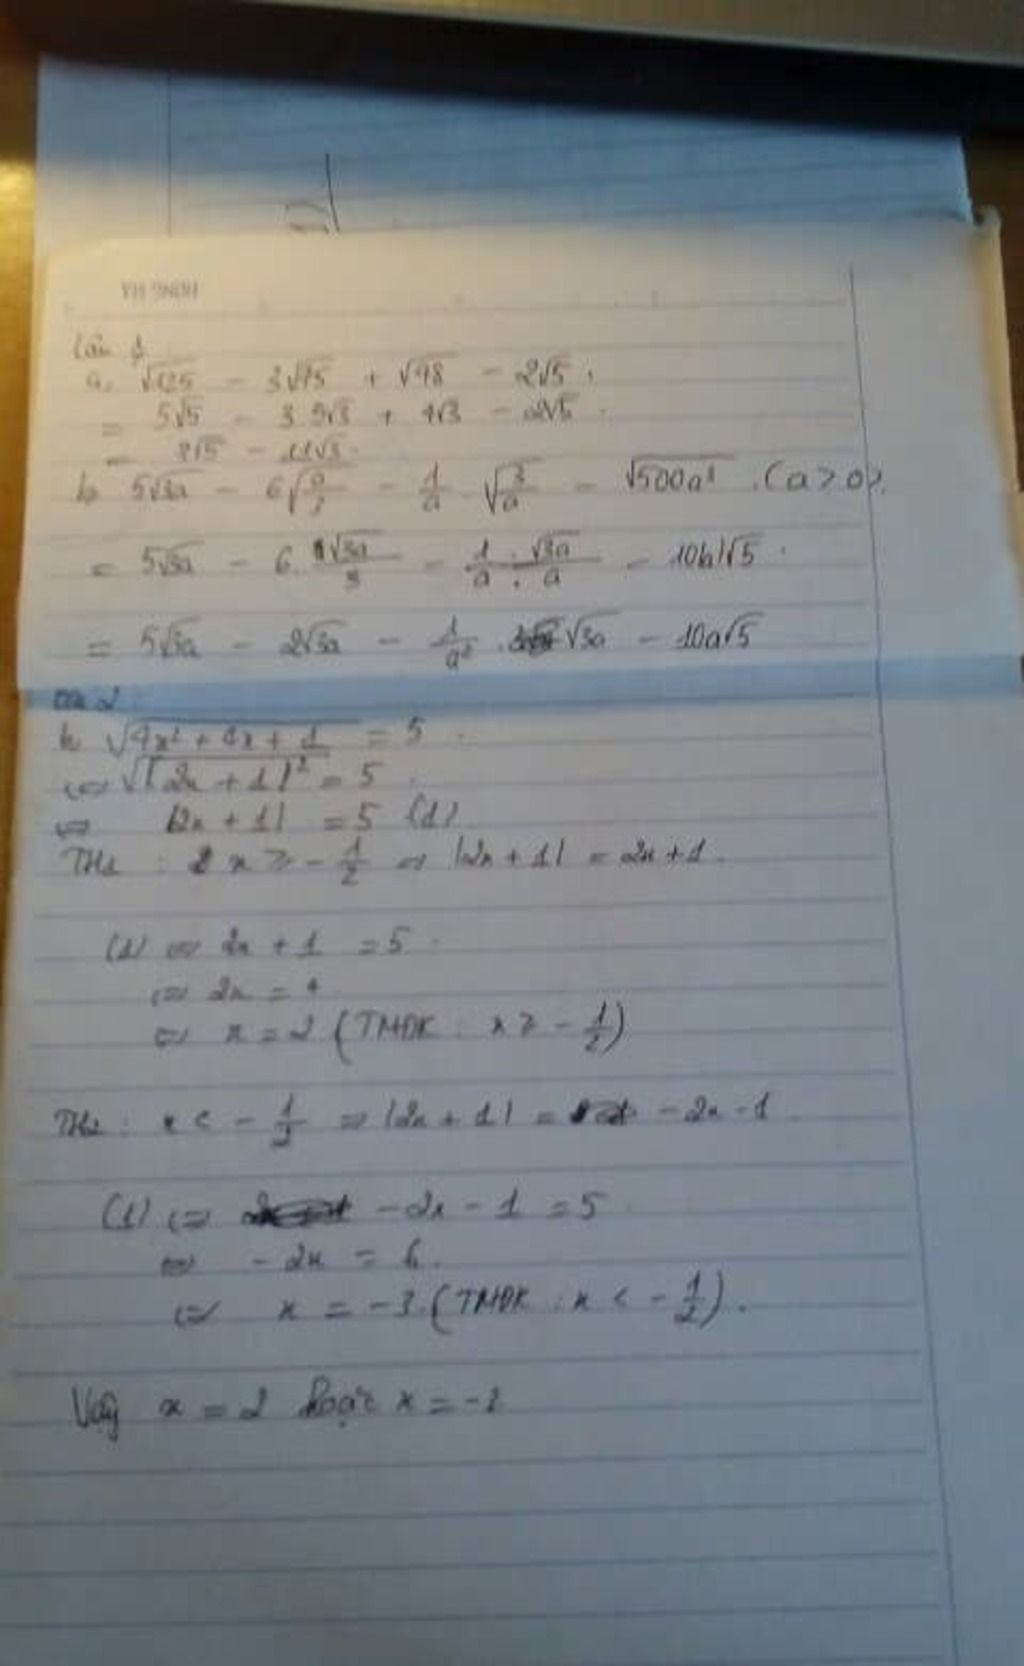 HỒNG HÀ
Câu 1
a, √125 - 3√75 + √48 - 2√5.
= 5√5 - 3.5√3 + 4√3 - 2√5.
= 3√5 - 11√3.
b, 5√3a - 6√a/3 - 1/a . √3/a - √500a² . (a > 0).
= 5√3a - 6. √3a/3 - 1/a . √3a/a - 10|a|√5 .
= 5√3a - 2√3a - 1/a² . √3a - 10a√5
Câu 2:
b, √4x² + 4x + 1 = 5 .
⇔ √(2x + 1)² = 5 .
⇔ |2x + 1| = 5 (1)
TH1 : x ≥ - 1/2 ⇒ |2x + 1| = 2x + 1 .
(1) ⇔ 2x + 1 = 5 .
⇔ 2x = 4
⇔ x = 2 (TMĐK : x ≥ - 1/2)
TH2 : x < - 1/2 ⇒ |2x + 1| = - 2x - 1 .
(1) ⇔ - 2x - 1 = 5 .
⇔ - 2x = 6 .
⇔ x = -3 . (TMĐK : x < - 1/2) .
Vậy x = 2 hoặc x = -3